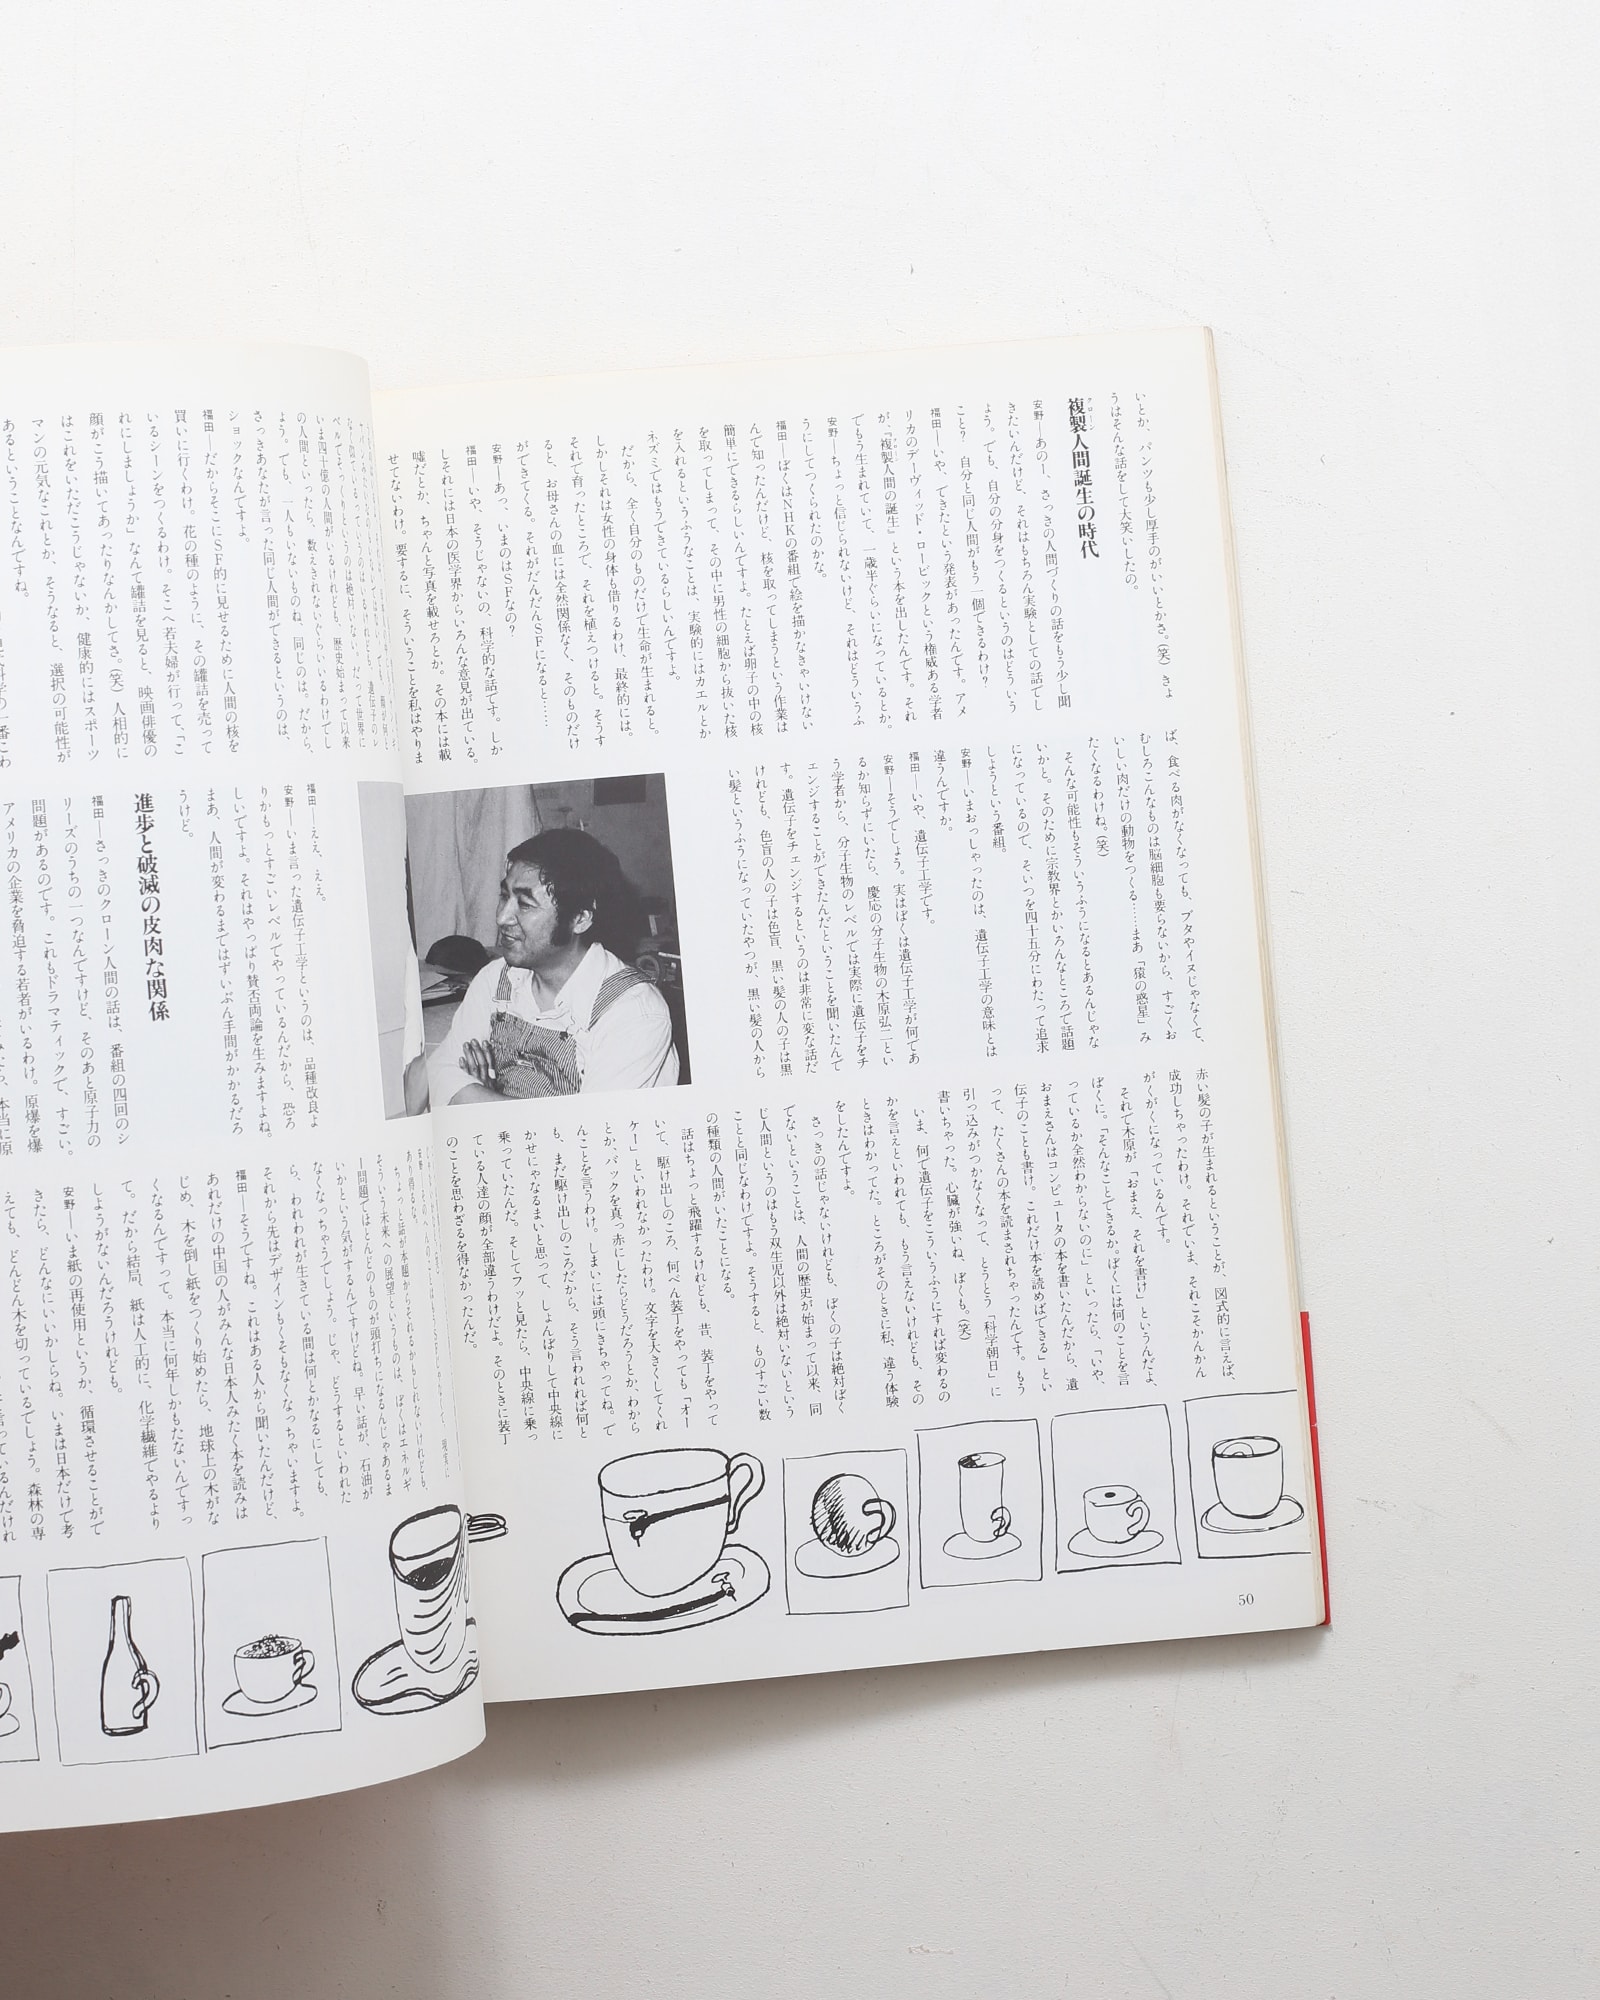 いとか、パンツも少し厚手のがいいとかさ。(笑) きょ
うはそんな話をして大笑いしたの。
複製人間誕生の時代
クローン
安野―あのー、さっきの人間づくりの話をもう少し聞
きたいんだけど、それはもちろん実験としての話でし
ょう。でも、自分の分身をつくるというのはどういう
こと? 自分と同じ人間がもう一個できるわけ?
福田―いや、できたという発表があったんです。アメ
リカのデーヴィッド・ロービックという権威ある学者
が、『複製人間の誕生』という本を出したんです。それ
でもう生まれていて、一歳半ぐらいになっているとか。
安野―ちょっと信じられないけど、それはどういうふ
うにしてつくられたのかな。
福田―ぼくはNHKの番組で絵を描かなきゃいけない
んで知ったんだけど、核を取ってしまうという作業は
簡単にできるらしいんですよ。たとえば卵子の中の核
を取ってしまって、その中に男性の細胞から抜いた核
を入れるというふうなことは、実験的にはカエルとか
ネズミではもうできているらしいんですよ。
だから、全く自分のものだけで生命が生まれると。
しかしそれは女性の身体も借りるわけ、最終的には。
それで育ったところで、それを植えつけると。そうす
ると、お母さんの血には全然関係なく、そのものだけ
ができてくる。それがだんだんSFになると……
安野―あっ、いまのはSFなの?
福田―いや、そうじゃないの、科学的な話です。しか
しそれには日本の医学界からいろんな意見が出ている。
嘘だとか、ちゃんと写真を載せろとか。その本には載
せてないわけ。要するに、そういうことを私はやりま
ば、食べる肉がなくなっても、ブタやイヌじゃなくて、
むしろこんなものは脳細胞も要らないから、すごくお
いしい肉だけの動物をつくる……まあ「猿の惑星」み
たくなるわけね。(笑)
そんな可能性もそういうふうになるとあるんじゃな
いかと。そのために宗教界とかいろんなところで話題
になっているので、そいつを四十五分にわたって追求
しようという番組。
安野―いまおっしゃったのは、遺伝子工学の意味とは
違うんですか。
福田―いや、遺伝子工学です。
安野―そうでしょう。実はぼくは遺伝子工学が何であ
るか知らずにいたら、慶応の分子生物の木原弘二とい
う学者から、分子生物のレベルでは実際に遺伝子をチ
ェンジすることができたんだということを聞いたんで
す。遺伝子をチェンジするというのは非常に変な話だ
けれども、色盲の人の子は色盲、黒い髪の人の子は黒
い髪というふうになっていたやつが、黒い髪の人から
赤い髪の子が生まれるということが、図式的に言えば、
成功しちゃったわけ。それでいま、それこそかんかん
がくがくになっているんです。
それで木原が、「おまえ、それを書け」というんだよ、
ぼくに。「そんなことできるか。ぼくには何のことを言
っているか全然わからないのに」といったら、「いや、
おまえさんはコンピュータの本を書いたんだから、遺
伝子のことも書け。これだけ本を読めばできる」とい
って、たくさんの本を読まされちゃったんです。もう
引っ込みがつかなくなって、とうとう「科学朝日」に
書いちゃった。心臓が強いね、ぼくも。(笑)
いま、何で遺伝子をこういうふうにすれば変わるの
かを言えといわれても、もう言えないけれども、その
ときはわかってた。ところがそのときに私、違う体験
をしたんですよ。
さっきの話じゃないけれども、ぼくの子は絶対ぼく
でないということは、人間の歴史が始まって以来、同
じ人間というのはもう双生児以外は絶対いないという
ことと同じなわけですよ。そうすると、ものすごい数
の種類の人間がいたことになる。
話はちょっと飛躍するけれども、昔、装丁をやって
いて、駆け出しのころ、何べん装丁をやっても「オー
ケー」といわれなかったわけ。文字を大きくしてくれ
とか、バックを真っ赤にしたらどうだろうとか、わから
んことを言うわけ。しまいには頭にきちゃってね。で
も、まだ駆け出しのころだから、そう言われれば何と
かせにゃなるまいと思って、しょんぼりして中央線に
乗っていたんだ。そしてフッと見たら、中央線に乗っ
ている人達の顔が全部違うわけだよ。そのときに装丁
のことを思わざるを得なかったんだ。
50
ベルでそっくりというのは絶対いない。だって世界に
いま四十億の人間がいるけれども、歴史始まって以来
の人間といったら、数えきれないぐらいいるわけでし
ょう。でも、一人もいないものね、同じのは。だから、
さっきあなたが言った同じ人間ができるというのは、
ショックなんですよ。
福田―だからそこにSF的に見せるために人間の核を
買いに行くわけ。花の種のように、その罐詰を売って
いるシーンをつくるわけ。そこへ若夫婦が行って、「こ
れにしましょうか」なんて罐詰を見ると、映画俳優の
顔がこう描いてあったりなんかしてさ。(笑) 人相的に
はこれをいただこうじゃないか、健康的にはスポーツ
マンの元気なこれとか、そうなると、選択の可能性が
あるということなんですね。
福田―ええ、ええ。
安野―いま言った遺伝子工学というのは、品種改良よ
りかもっとすごいレベルでやっているんだから、恐ろ
しいですよ。それはやっぱり賛否両論を生みますよね。
まあ、人間が変わるまではずいぶん手間がかかるだろ
うけど。
進歩と破滅の皮肉な関係
福田―さっきのクローン人間の話は、番組の四回のシ
リーズのうちの一つなんですけど、そのあと原子力の
問題があるのです。これもドラマティックで、すごい。
アメリカの企業を脅迫する若者がいるわけ。原爆を爆
ちょっと話が本題からそれるかもしれないけれども、
そういう未来への展望というものは、ぼくはエネルギ
ー問題でほとんどのものが頭打ちになるんじゃあるま
いかという気がするんですけどね。早い話が、石油が
なくなっちゃうでしょう。じゃ、どうするといわれた
ら、われわれが生きている間は何とかなるにしても、
それから先はデザインもくそもなくなっちゃいますよ。
福田―そうですね。これはある人から聞いたんだけど、
あれだけの中国の人がみんな日本人みたく本を読みは
じめ、木を倒し紙をつくり始めたら、地球上の木がな
くなるんですって。本当に何年しかもたないんですっ
て。だから結局、紙は人工的に、化学繊維でやるより
しようがないんだろうけれども。
安野―いま紙の再使用というか、循環させることがで
きたら、どんなにいいかしらね。いまは日本だけで考
えても、どんどん木を切っているでしょう。森林の専